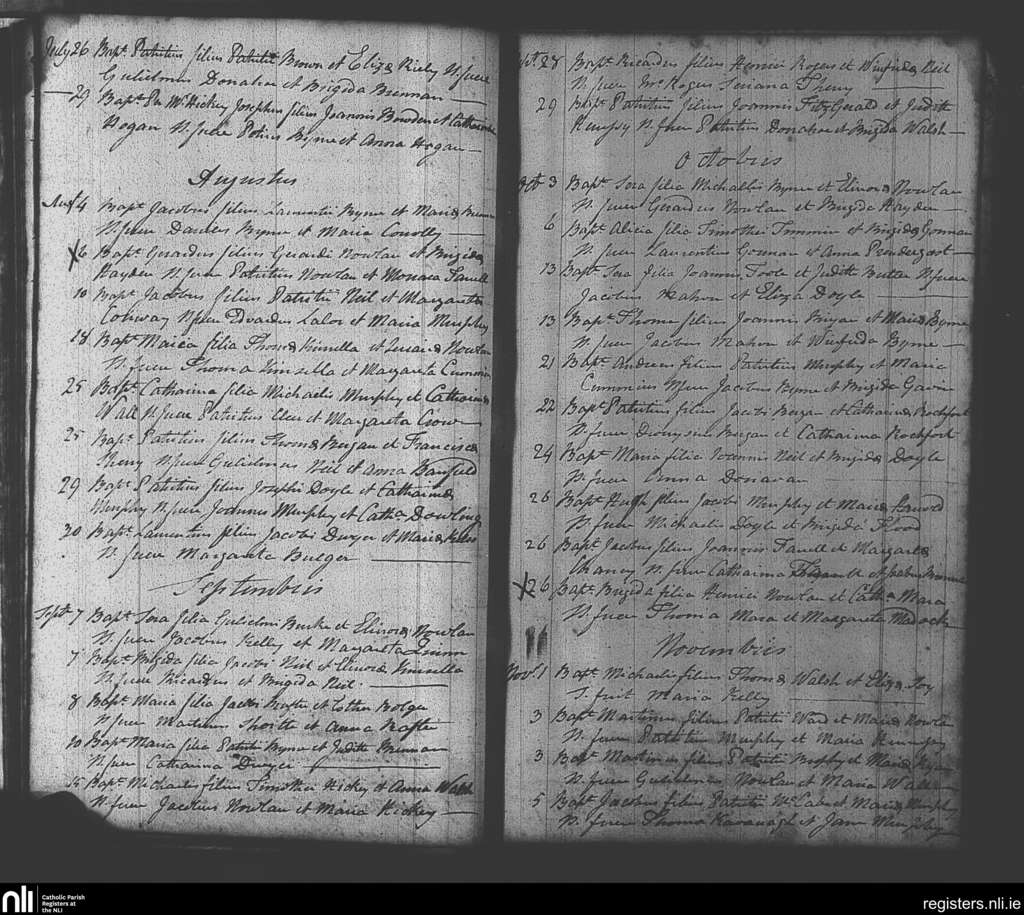 July 26 Bapt. Patritius filius Patritii Brown et Eliza Rieley P. fuere
Gulielmus Donahoe et Brigida Brennan
29 Bapt. Pr. McHickey Josephus filius Joannis Bowden et Catharina
Hogan P. fuere Petrus Byrne et Anna Hogan
Augustus
Aust 4 Bapt. Jacobus filius Laurentii Byrne et Maria
P. fuere Daniel Byrne et Maria Conolly
X6 Bapt. Gerardus filius Gerardi Nowlan et Brigida
Hayden P. fuere Patritius Nowlan et Monaca Farrell
10 Bapt. Jacobus filius Patritii Neil et Margarita
Conway P. fuere Edvardus Lalor et Maria Murphy
18 Bapt. Maria filia Thoma Kinsella et Nowlan
P. fuere Thoma Kinsella et Margareta Cummin
25 Bapt. Catharina filia Michaelis Murphy et Catharina
Wall P. fuere Patritius et Margareta Crow
25 Bapt. Patritius filius Thoma Bergan et Francisca
Sherry P. fuere Gulielmus Neil et Anna Banfield
29 Bapt. Patritius filius Josephi Doyle et Catharina
Murphy P. fuere Joannes Murphy et Catha. Dowling
30 Bapt. Laurentius filius Jacobi Dwyer et Maria
P. fuere Margareta Bulger
Septembris
Sept. 7 Bapt. Sera filia Gulielmi Burke et Elinora Nowlan
P. fuere Jacobus Kelly et Margareta Quinn
7 Bapt. Brigida filia Jacobi Neil et Elinora Kinsella
P. fuere Ricardus et Brigida Neil
8 Bapt. Maria filia Jacobi et Esther Bolger
P. fuere Martinus et Anna
10 Bapt. Maria filia Patritii Byrne et Judith Brennan
P. fuere Catharina Dwyer
15 Bapt. Michaelis filius Timothei Hickey et Anna Walsh
P. fuere Jacobus Nowlan et Maria Hickey
28 Bapt. Ricardus filius Henrici Rogers et Winifrida Neil
P. fuere Mr. Rogers Sherry
29 Bapt. Patritius filius Joannis FitzGerald et Judith
Hempsy P. fuere Patritius Donahoe et Brigida Walsh
Octobris
Oct 3 Bapt. Sera filia Michaelis Byrne et Elinora Nowlan
P. fuere Gerardus Nowlan et Brigida Hayden
6 Bapt. Alicia filia Timothei Timmin et Brigida Gorman
P. fuere Laurentius Gorman et Anna Prendergast
13 Bapt. Sera filia Joannis Toole et Judith Butler P. fuere
Jacobus Mahon et Eliza Doyle
13 Bapt. Thoma filius Joannis Bryan et Maria Byrne
P. fuere Jacobus Mahon et Winifrida Byrne
21 Bapt. Andreas filius Patritius Murphy et Maria
Cummins P. fuere Jacobus Byrne et Brigida Gavin
22 Bapt. Patritius filius Jacobi Bergan et Catharina Rochfort
P. fuere Dionysius Bergan et Catharina Rochfort
24 Bapt. Maria filia Joannis Neil et Brigida Doyle
P. fuere Anna Donavan
26 Bapt. Hugh filius Jacobi Murphy et Maria
P. fuere Michaelis Doyle et Brigida Flood
26 Bapt. Jacobus filius Joannis Farrell et Margareta
Chaney P. fuere Catharina
X26 Bapt. Brigida filia Henrici Nowlan et Catha. Mara
P. fuere Thoma Mara et Margareta Madock
Novembris
Nov. 1 Bapt. Michaelis filius Thoma Walsh et Eliza Foy
S. fuit Maria Kelly
3 Bapt. Martinus filius Patritii Ward et Maria Nowlan
P. fuere Patritius Murphy et Maria
3 Bapt. Martinus filius Patritii Brophy et Maria
P. fuere Gulielmus Nowlan et Maria Wall
5 Bapt. Jacobus filius Patritii McCabe et Maria Murphy
P. fuere Thoma Kavanagh et Jam Murphy
nli
Catholic Parish
Registers at
the NLI
registers.nli.ie